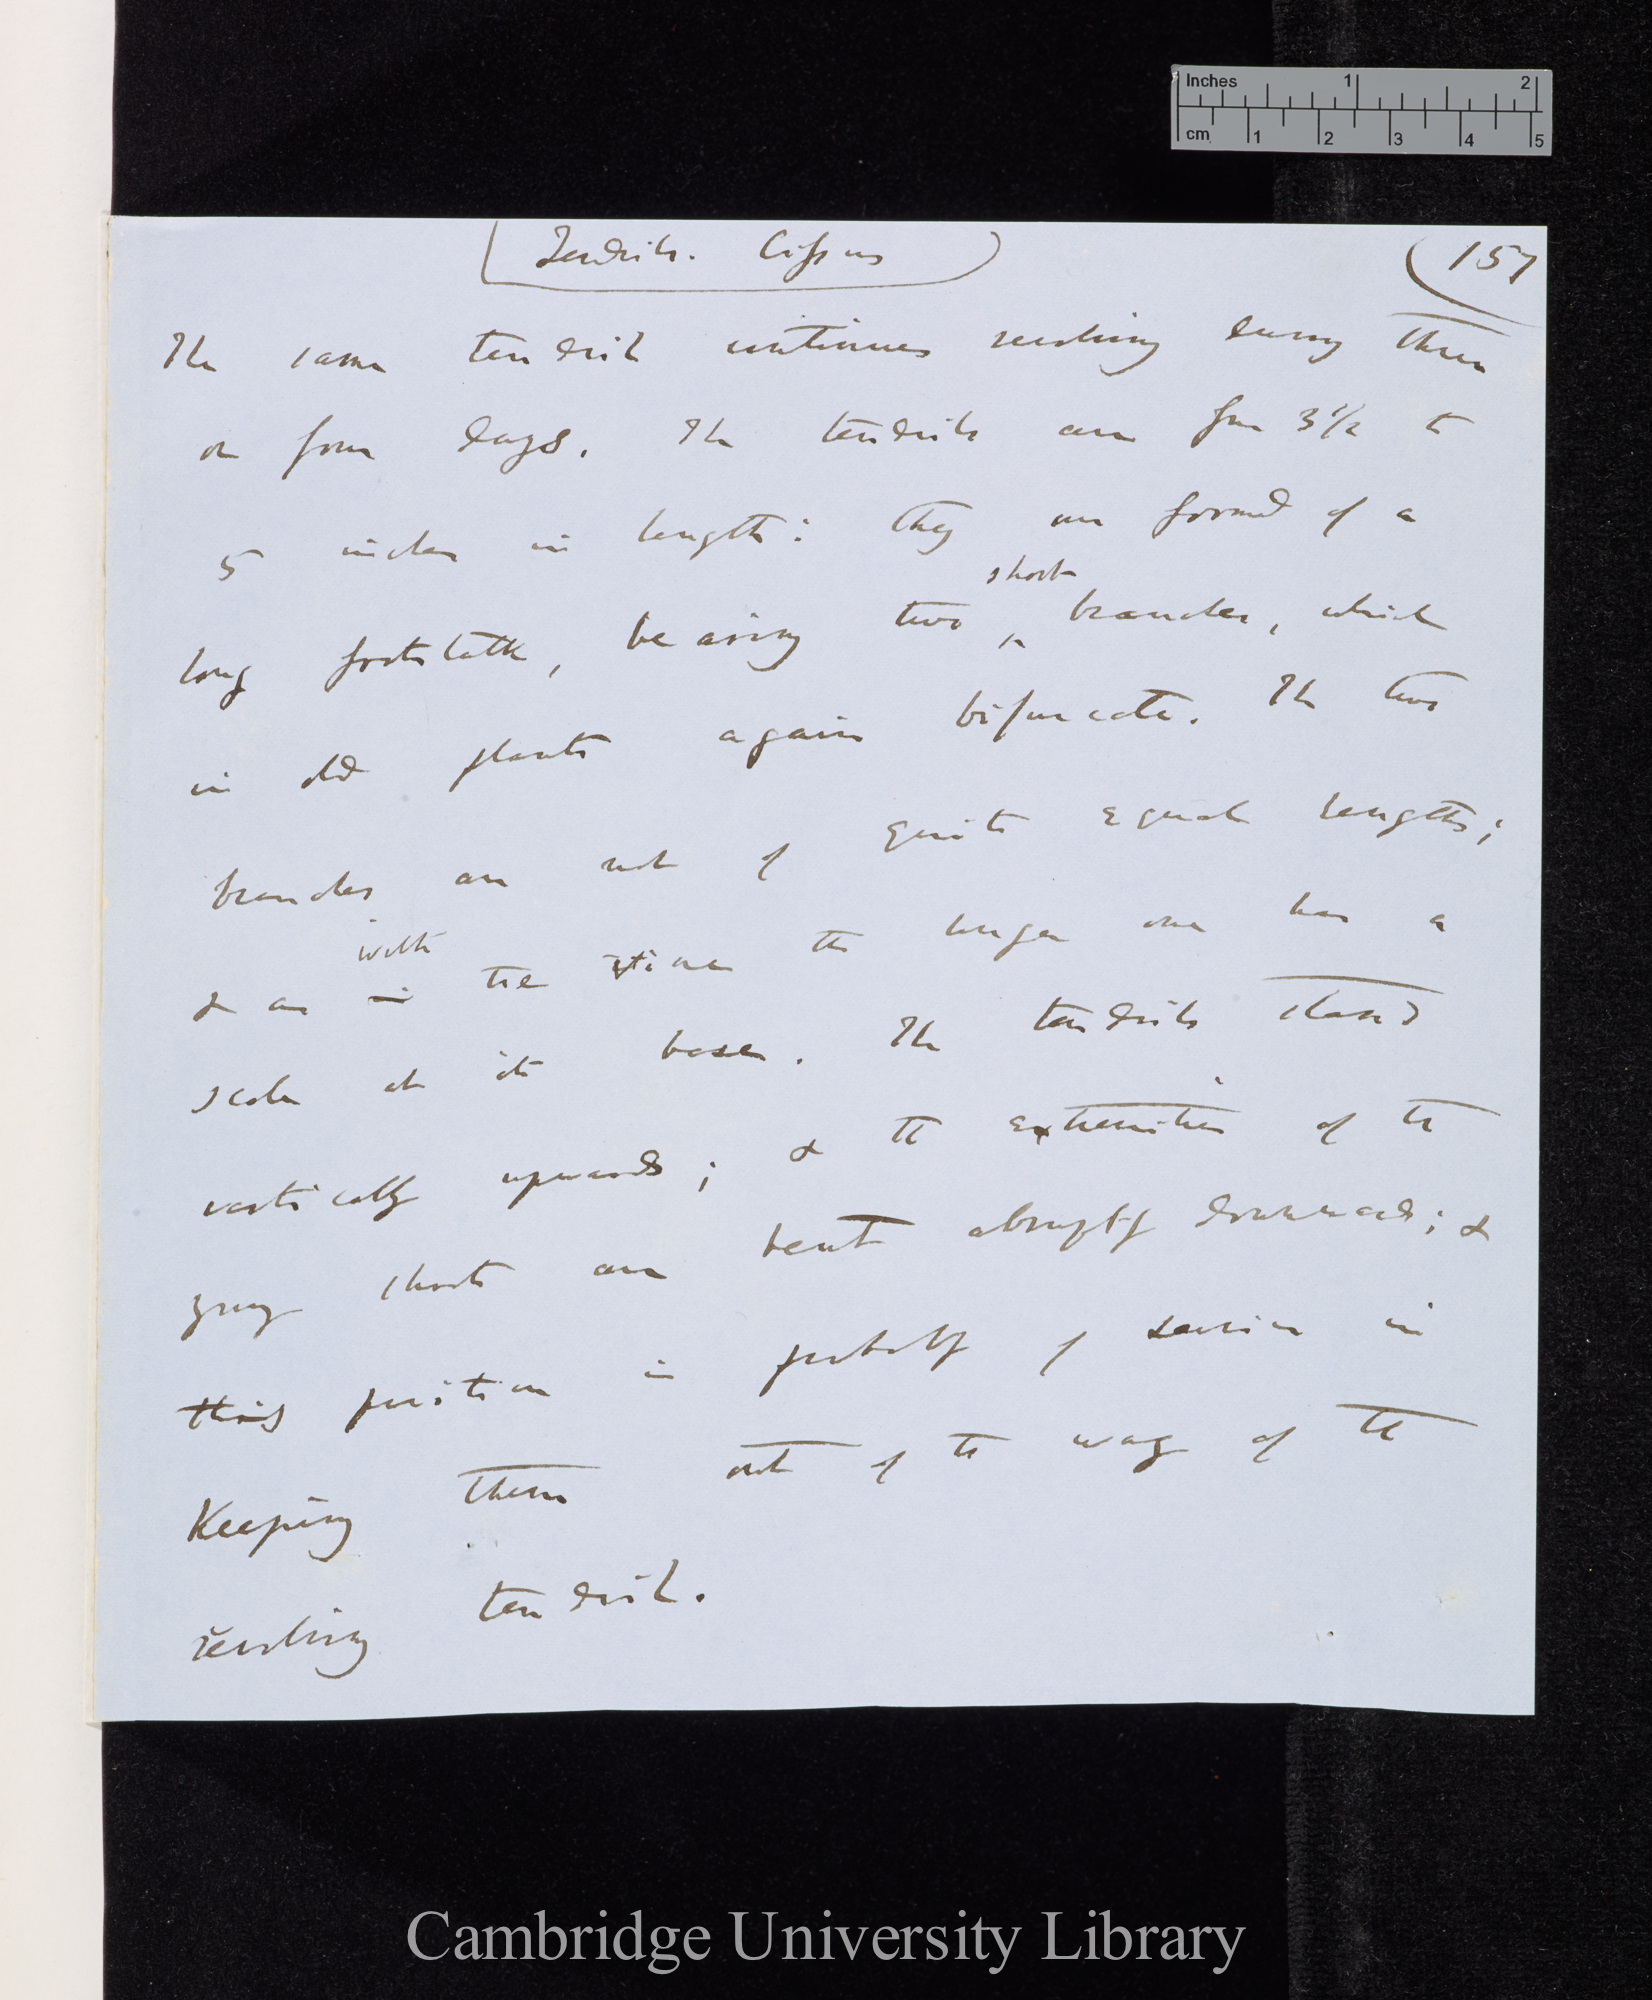 Inches 1 2
cm 1 2 3 4 5
Tendrils. Cissus
157
The same tendril continues revolving during three
or four days. The tendrils are from 3 1/2 to
5 inches in length: they are formed of a
short
long footstalk, bearing two ^ branches, which
in old plants again bifurcate. The two
branches are not of quite equal lengths;
with
& as in the vine the longer one has a
scale at its base. The tendrils stand
vertically upwards; & the extremities of the
young shoots are bent abruptly downwards; &
this position is probably of service in
Keeping them out of the way of the
revolving tendril.
Cambridge University Library